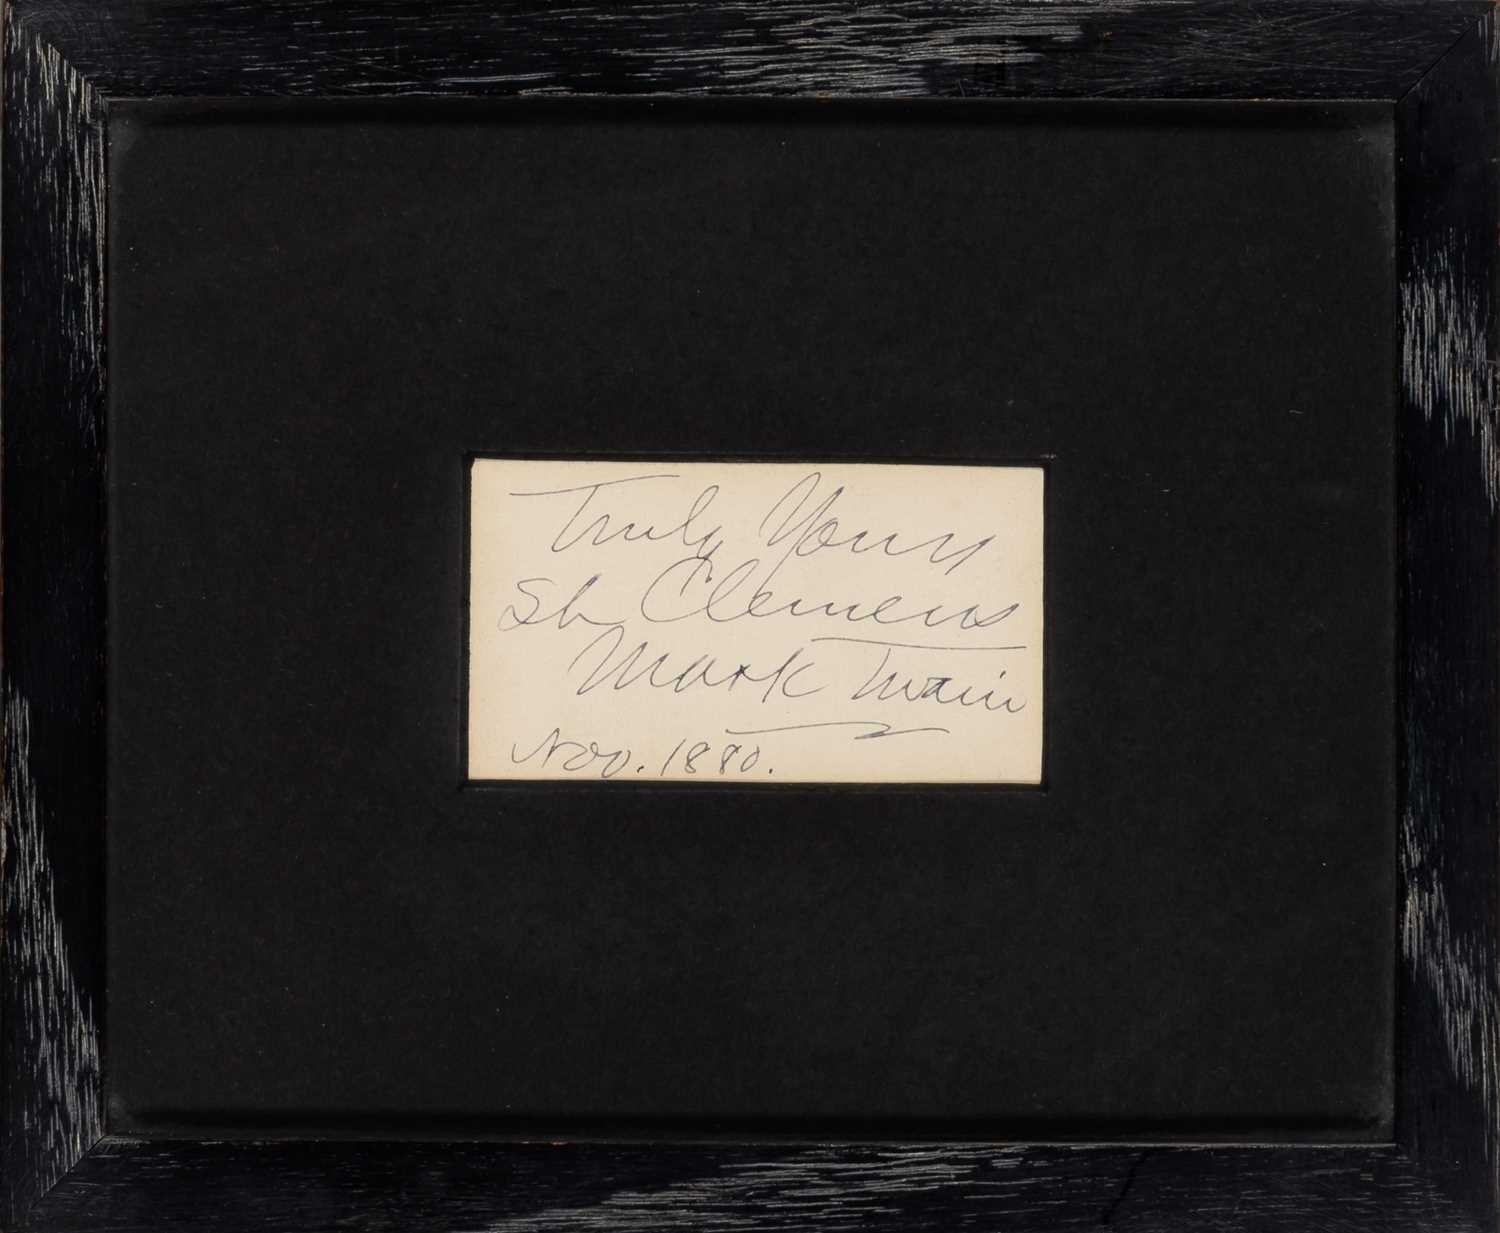 Truly Yours
SL Clemens
Mark Twain
Nov. 1880.